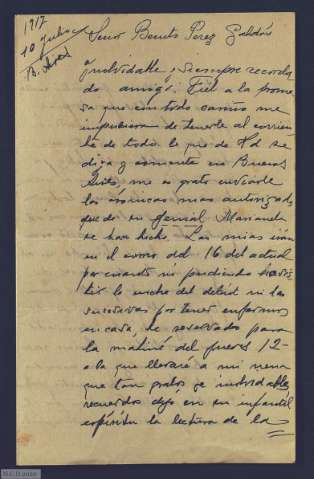 1917
10 Julio
B. Aires
Señor Benito Perez Galdós
Inolvidable y siempre recorda
do amigo: Fiel a la prome
sa que con todo cariño me
impusiera de tenerle al corrien
te de todo lo que de Vd se
diga y comente en Buenos
Aires, me es grato enviarle
las crónicas mas autorizadas
que de su genial Marianela
se han hecho. Las mias irán
en el correo del 16 del actual
por cuanto no pudiendo asis
tir la noche del debut ni las
sucesivas por tener enfermos
en casa, he reservado para
la matiné del jueves 12-
a la que llevaré a mi nena
que tan gratos e inolvidables
recuerdos dejo en su infantil
espíritu la lectura de la